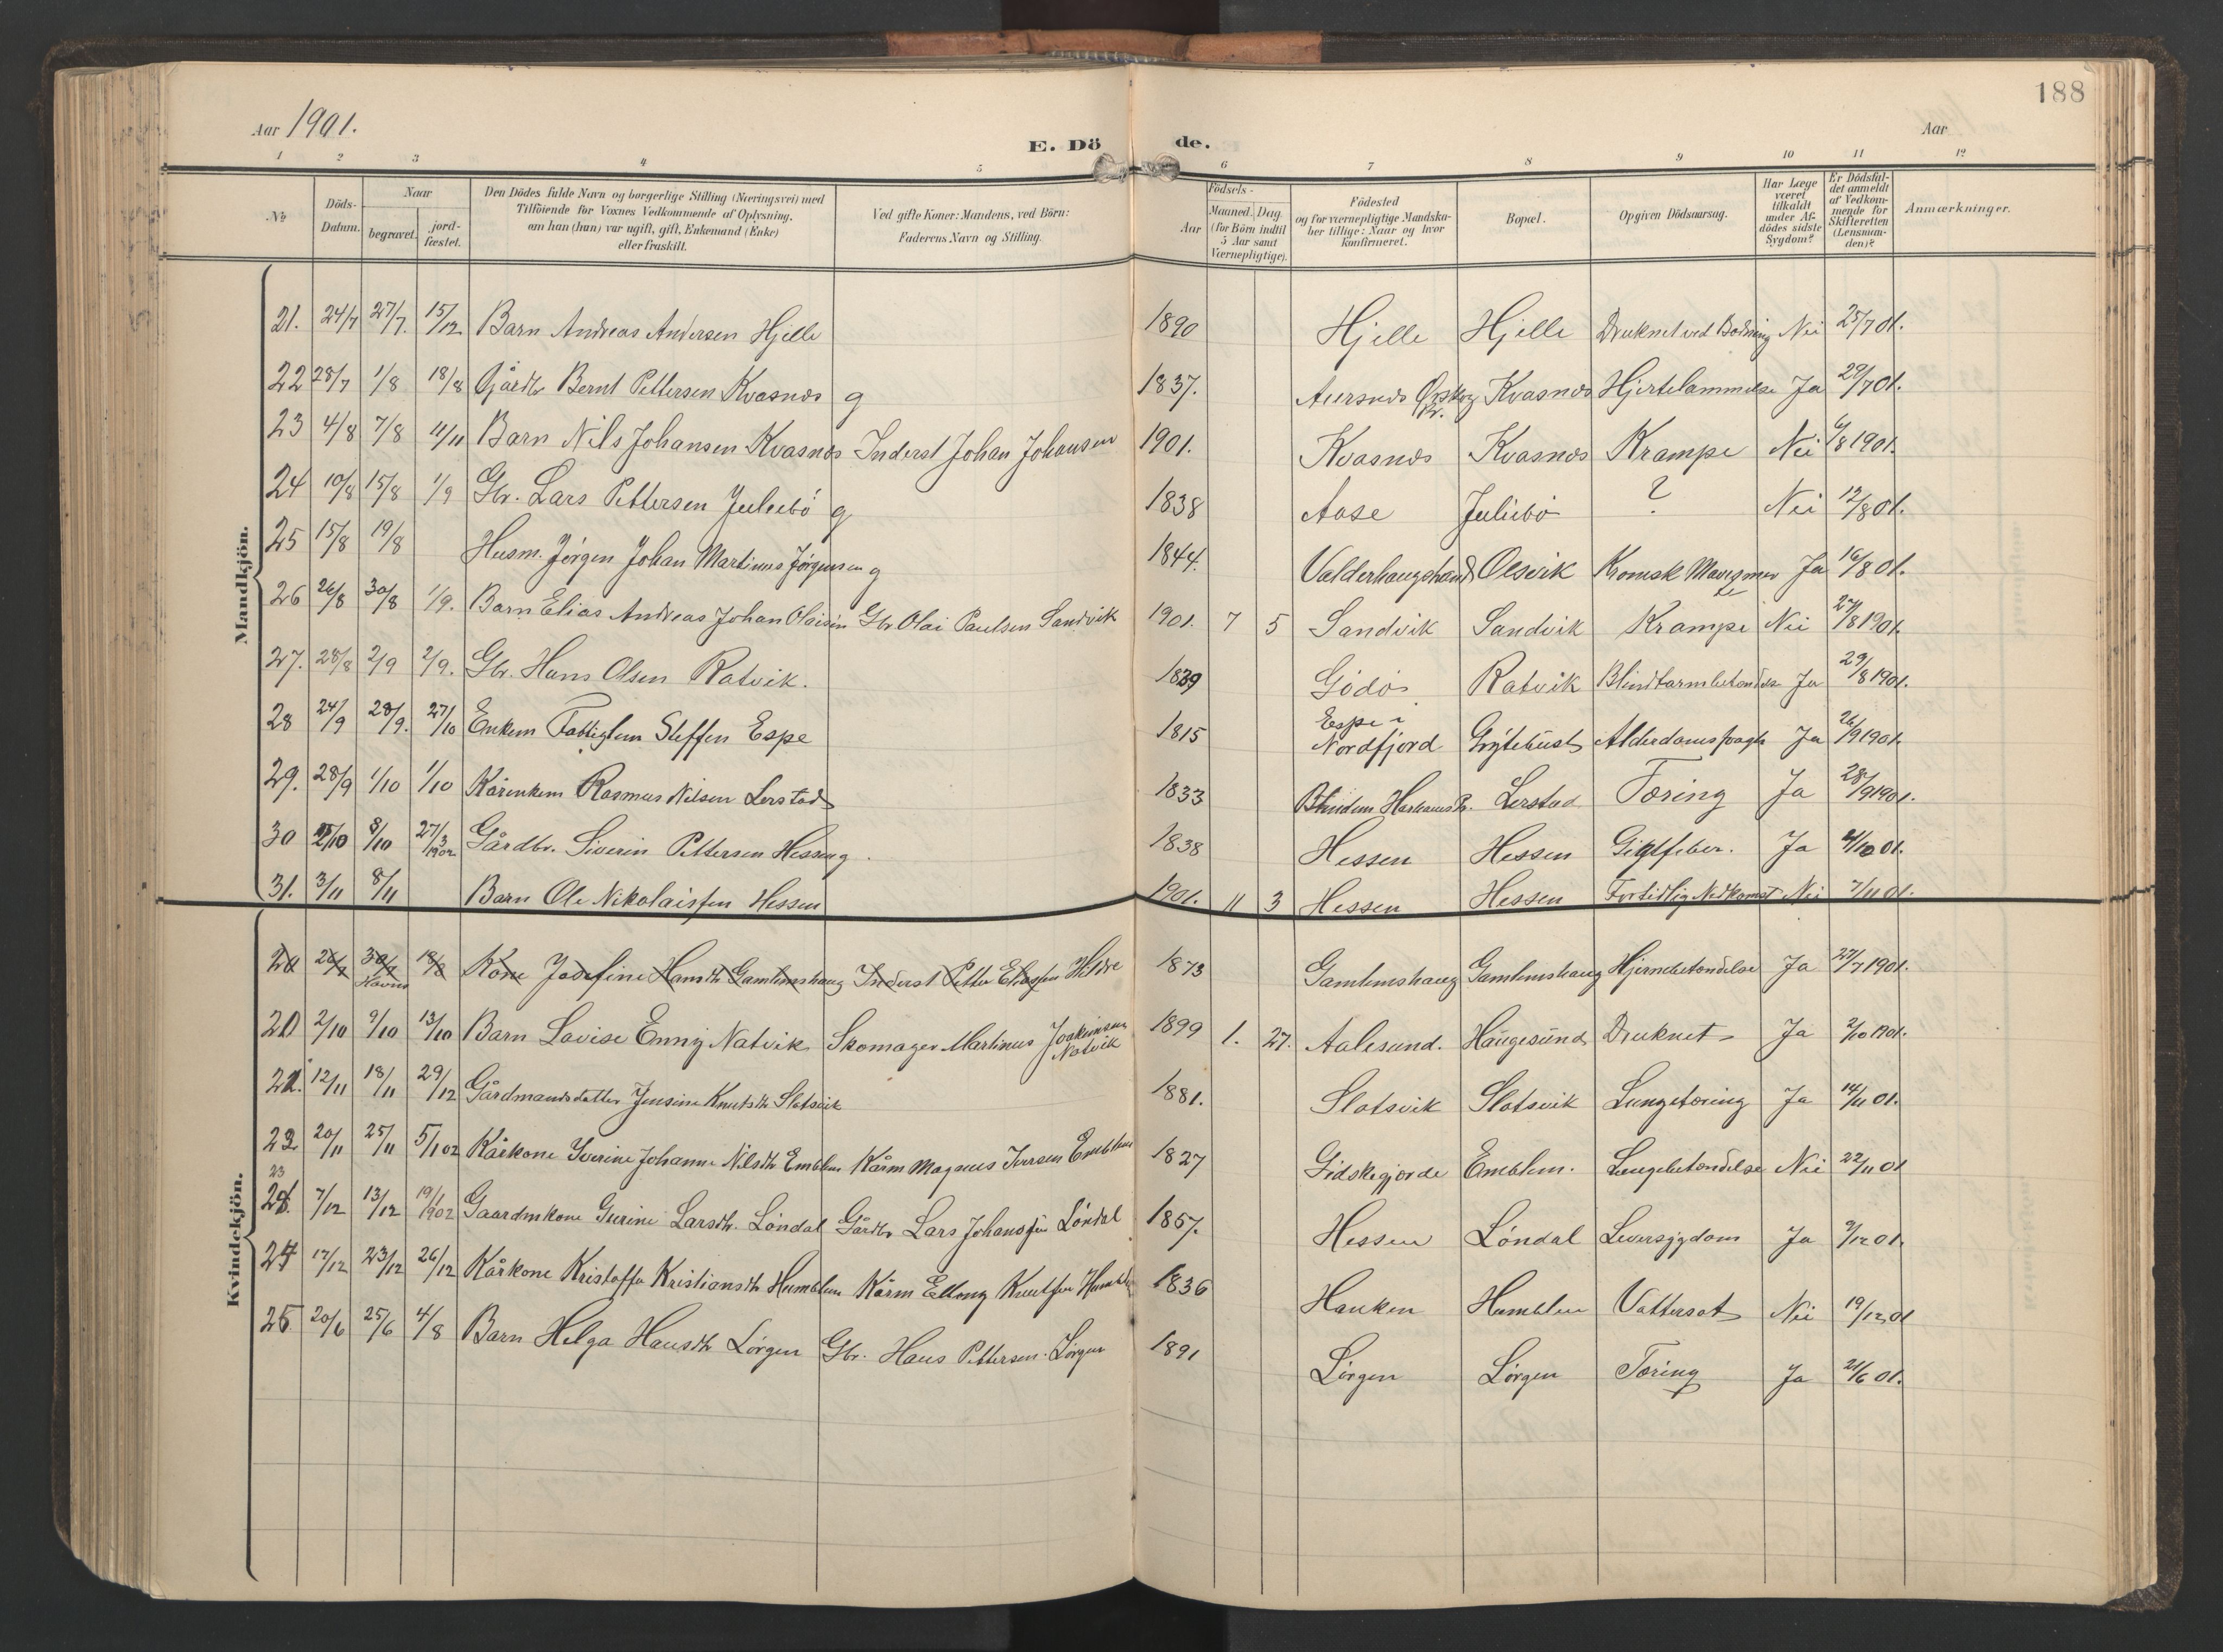 188
Aar 1901.
Aar
E. Döde.
1 2 3 4 5 6 7 8 9 10 11 12
No
Döds-Datum.
Naar
begravet.
jord-fæstet.
Den Dödes fulde Navn og borgerlige Stilling (Næringsvei) med
Tilföiende for Voxnes Vedkommende af Oplysning,
om han (hun) var ugift, gift, Enkemand (Enke)
eller fraskilt.
Ved gifte Koner: Mandens, ved Börn:
Faderens Navn og Stilling.
Födsels-
Aar
Maaned. Dag.
(for Börn indtil
5 Aar samt
Værnepligtige).
Födested
og for værnepligtige Mandska-
ber tillige: Naar og hvor
konfirmeret.
Bopæl.
Opgiven Dödsaarsag.
Har Læge
været
tilkaldt
under Af-
dödes sidste
Sygdom?
Er Dödsfal-
det anmeldt
af Vedkom-
mende for
Skifteretten
(Lensman-
den)?
Anmærkninger.
Mandkjön.
21. 24/7 27/7. 15/12 Barn Andreas Andersen Hjelle 1890 Hjelle Hjelle Druknet ved Badning Nei 25/7 01.
22 28/7 1/8 18/8 Gårdbr Bernt Pettersen Kvasnes g 1837. Aursnes Ørskog Pr. Kvasnes Hjertelammelse Ja 29/7 01.
23 4/8 7/8 11/11 Barn Nils Johansen Kvasnes Inderst Johan Johansen 1901. Kvasnes Kvasnes Krampe Nei 6/8 1901.
24 10/8 15/8 1/9 Gbr. Lars Pettersen Juliebö g 1838 Aase Juliebö ? Nei 12/8 01.
25 15/8 19/8 Husm. Jörgen Johan Martinus Jörgensen g 1844. Valderhaugstrand Olsvik Kronisk Ja 16/8 01.
26 26/8 30/8 1/9. Barn Elias Andreas Johan Olaisen Gbr Olai Paulsen Sandvik 1901. 7 5 Sandvik Sandvik Krampe Nei 27/8 1901.
27. 28/8 2/9 2/9. Gbr. Hans Olsen Ratvik. 1839 Godö Ratvik Blindtarmbetændelse Ja 29/8 1901.
28 24/9 28/9. 27/10 Enkem Fattiglem Steffen Espe 1815 Espe i Nordfjord Grytebust Alderdomssvaghed Ja 26/9 1901.
29. 28/9 1/10 1/10 Kårenkem Rasmus Nilsen Lerstad 1833 Blindem Harhams Pr. Lerstad Tæring Ja 28/9 1901.
30 2/10 8/10 27/3 1902 Gårdbr. Siverin Pettersen Hessen g. 1838 Hessen Hessen Gigtfeber. Ja 4/10 01.
31. 3/11 8/11 Barn Ole Nikolaissen Hessen 1901. 11 3 Hessen Hessen Fortidlig Nedkomst Nei 7/11 01.
Kvindekjön.
20 26/7 30/7 18/8 Kone Josefine Hansdt Gamlemshaug Inderst Petter Eliassen Hildre 1873 Gamlemshaug Gamlemshaug Hjernebetændelse Ja 27/7 1901.
20 2/10 9/10 13/10 Barn Lovise Enny Natvik Skomager Martinus Joakimsen Natvik 1899 1. 27. Aalesund. Haugesund Druknet Ja 2/10 1901.
21. 12/11 18/11 29/12 Gårdmandsdatter Jensine Knutsdt Slotsvik 1881. Slotsvik Slotsvik Lungetæring Ja 14/11 01.
22 20/11 25/11 5/1 02 Kårkone Iverine Johanne Nilsdt Emblem Kårm Magnus Iversen Emblem 1827 Gidskegjorde Emblem. Lungebetændelse Nei 22/11 01
23 7/12 13/12 19/1 1902 Gaardmkone Gurine Larsdt. Löndal Gårdbr Lars Johansen Löndal 1857. Hessen Löndal Leversygdom Ja 9/12 01.
24 17/12 23/12 26/12 Kårkone Kristoffa Kristiansdt Humblen Kårm Elling Knutsen 1836 Hauken Humblen Vattersot Nei 19/12 01
25 20/6 25/6 4/8 Barn Helga Hansdt Lørgen Gbr. Hans Pettersen Lørgen 1891 Lørgen Lørgen Tæring Ja 21/6 01.